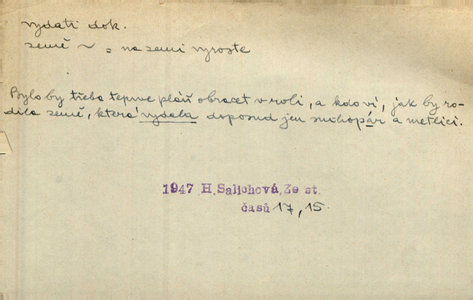 vydati dok.
země ~ = na zemi vyroste
Bylo by třeba teprve pláň obracet v roli, a kdoví, jak by ro-
dila země, která vydala doposud jen suchopár a metlici.
1947 H. Salichová, Ze st.
časů 17, 15.